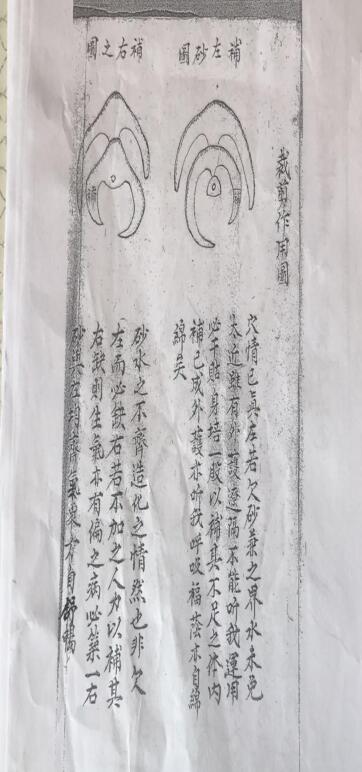 裁剪作用圖
補左砂圖
補
穴情已真左若欠砂兼之界水未免
太近雖有外護遼隔不能听我運用
必于貼身培一股以補其不足之体内
補已成外護亦听我呼吸福蔭亦自綿
綿矣
補右之圖
補
砂水之不齊造化之情然也非欠
左而必缺右若不加之人力以補其
右缺則生氣亦有偏之病必築一右
砂與左齊生氣自舒暢